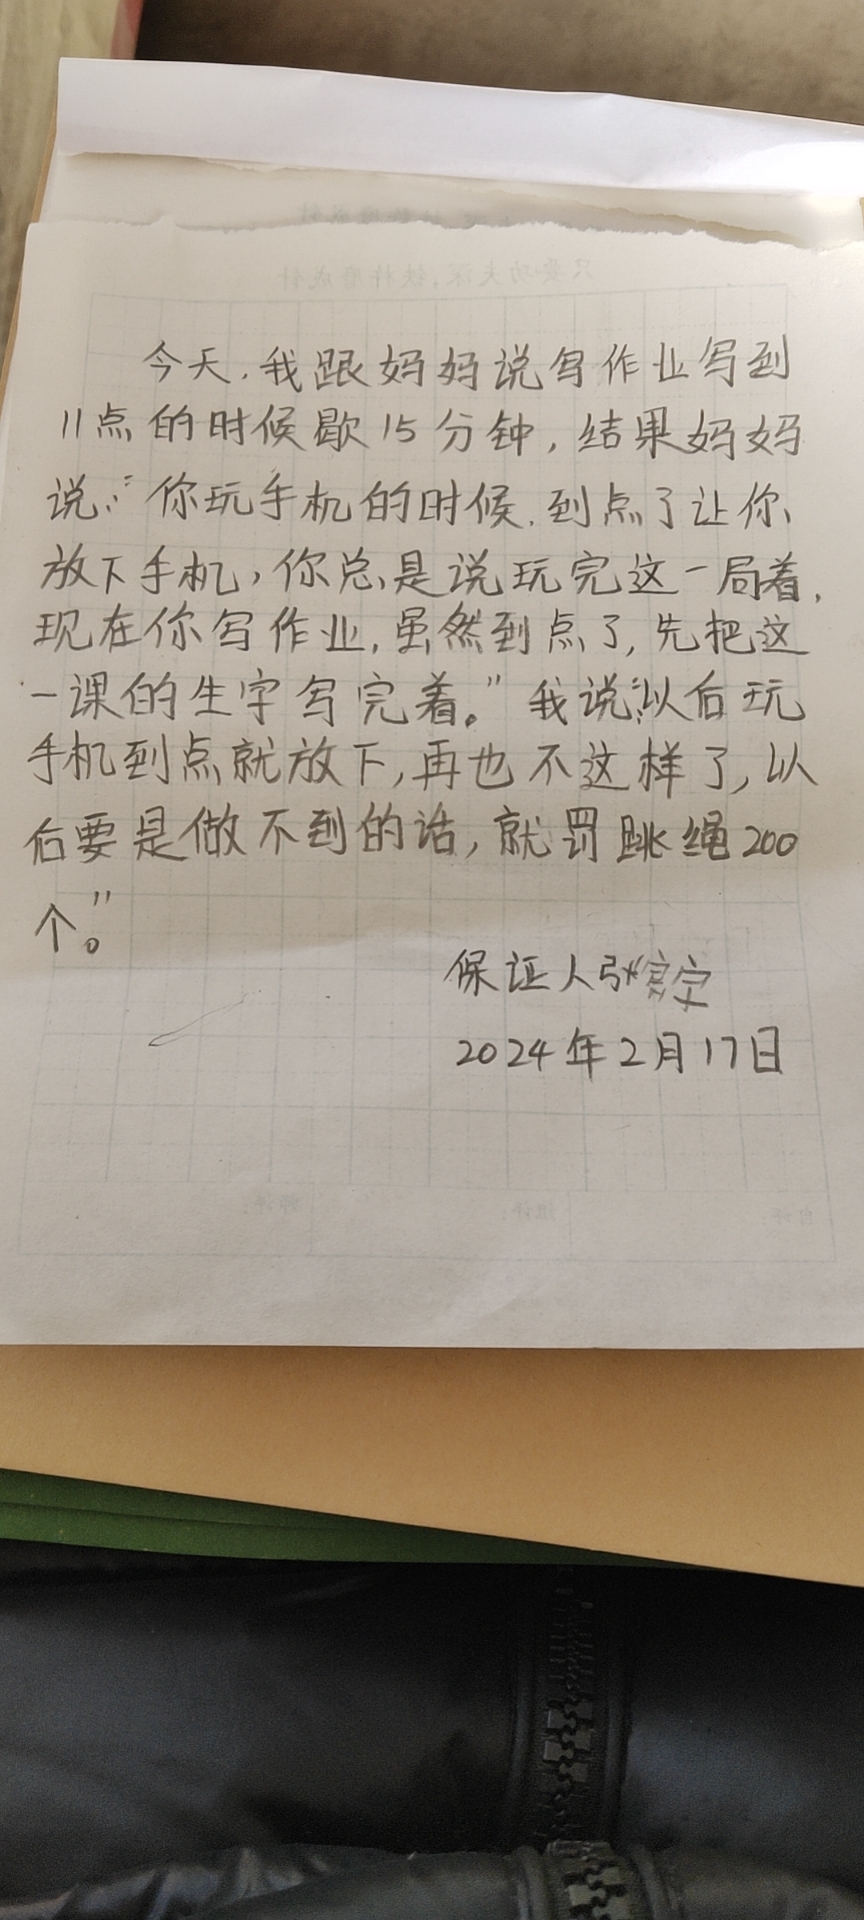 只要功夫深,铁杵磨成针
今天,我跟妈妈说写作业写到
11点的时候歇15分钟,结果妈妈
说:“你玩手机的时候,到点了让你
放下手机,你总是说玩完这一局着,
现在你写作业,虽然到点了,先把这
一课的生字写完着。”我说:“以后玩
手机到点就放下,再也不这样了,以
后要是做不到的话,就罚跳绳200
个。”
保证人张
2024年2月17日
自评: 组评: 师评: